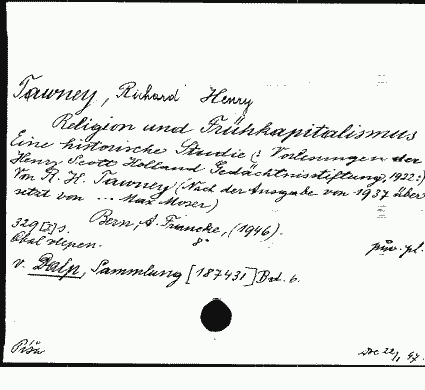 Tawney, Richard Henry
Religion und Frühkapitalismus
Eine historische Studie (: Vorlesungen der
Henry Scott Holland Gedächtnisstiftung, 1922:)
Von R. H. Tawney (Nach der Ausgabe von 1937 über
setzt von ... Max Moser)
Bern, A. Francke, (1946).
329 [2] s. 8°
v. Dalp, Sammlung [187431] Bd. 6.